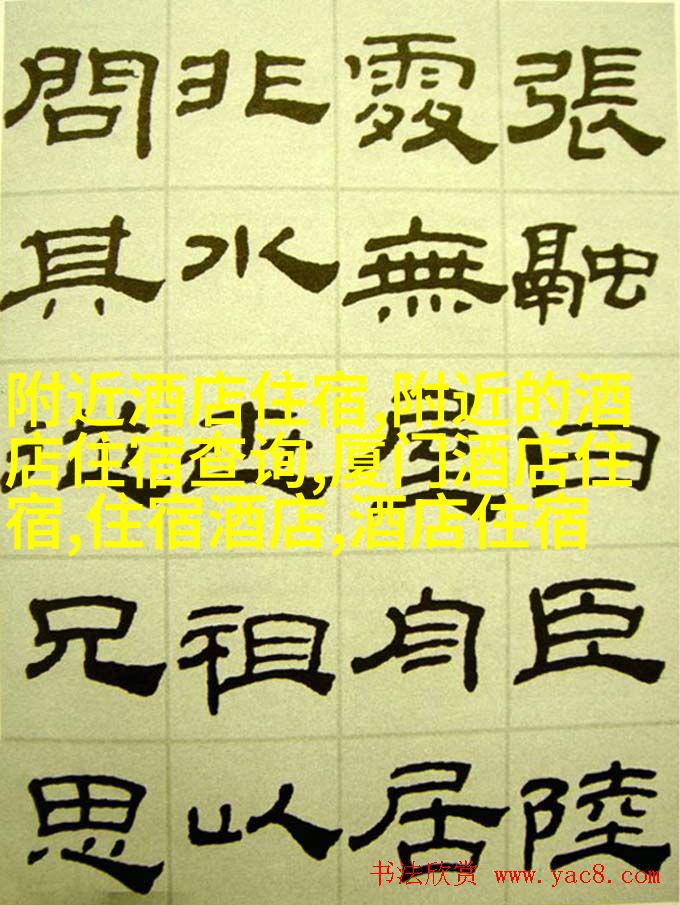 張融曰臣陸
處無屋舟居
非水世祖以
問其從兄思
附近酒店住宿,附近的酒
店住宿查询,厦门酒店住
宿,住宿酒店,酒店住宿
书法欣赏 www.yac8.com